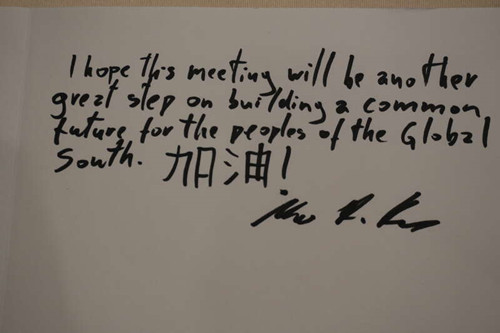 I hope this meeting will be another
great step on building a common
future for the peoples of the Global
South. 加油!